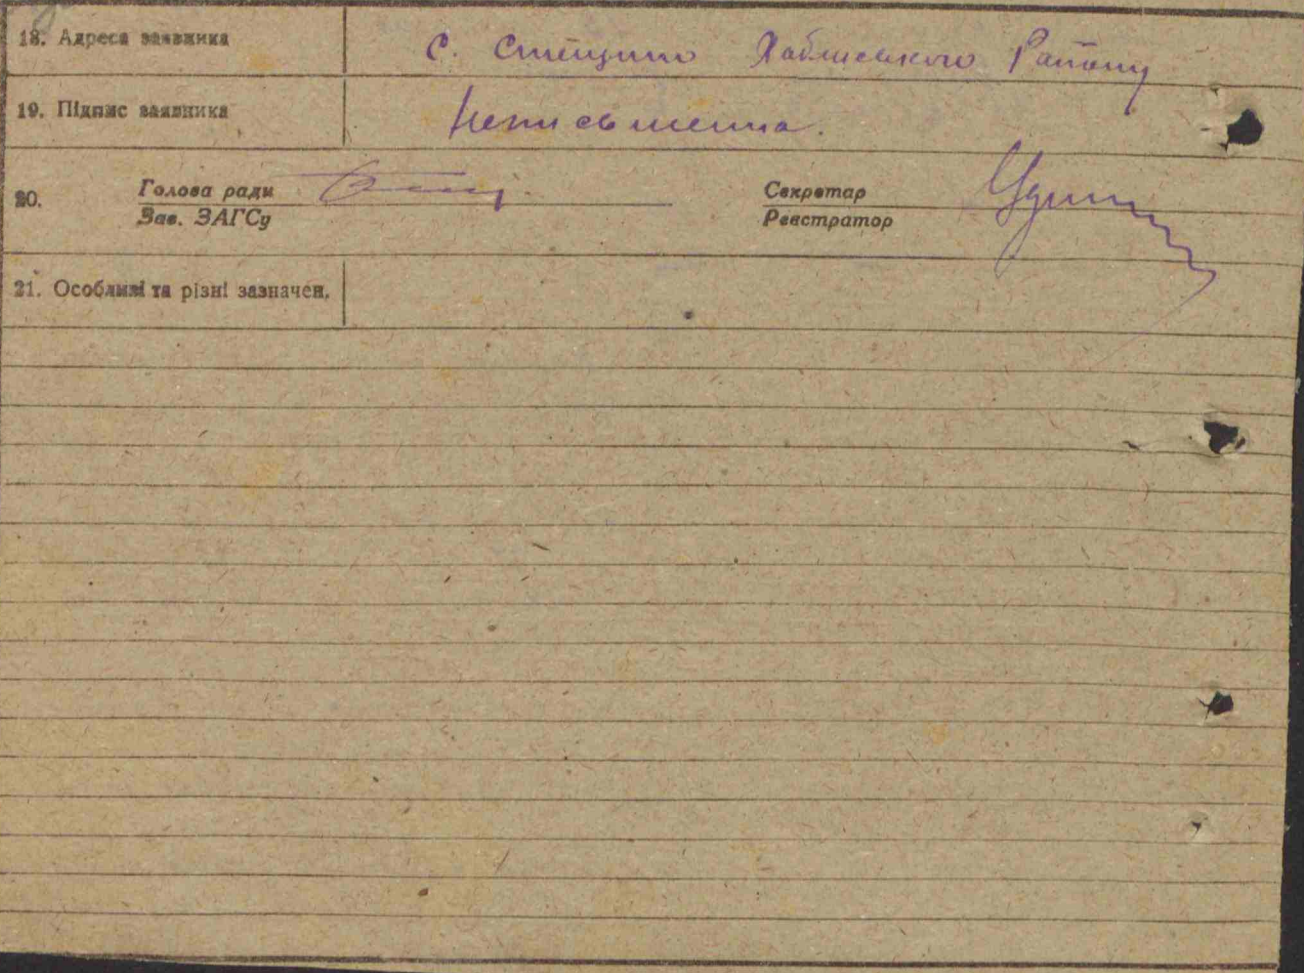 18. Адреса заявника с. Стещино Хабнського Району
19. Підпис заявника Неписьменна.
20. Голова ради Секретар
Зав. ЗАГСу Реєстратор
21. Особливі та різні зазначен.